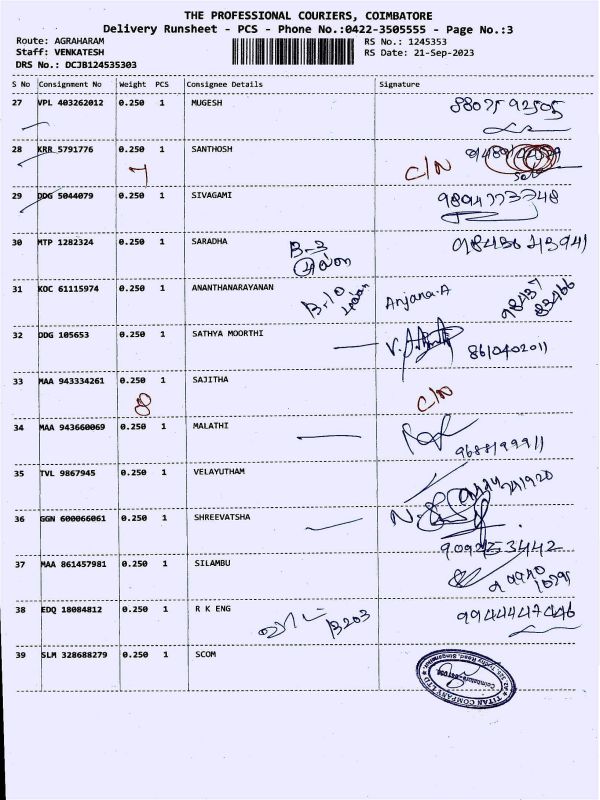 THE PROFESSIONAL COURIERS, COIMBATORE
Delivery Runsheet - PCS - Phone No.:0422-3505555 - Page No.:3
Route: AGRAHARAM RS No.: 1245353
Staff: VENKATESH RS Date: 21-Sep-2023
DRS No.: DCJB124535303
S No Consignment No Weight PCS Consignee Details Signature
27 VPL 403262012 0.250 1 MUGESH 8807592505
28 KRR 5791776 0.250 1 SANTHOSH
7 C/N
29 DDG 5044079 0.250 1 SIVAGAMI 9894773748
30 MTP 1282324 0.250 1 SARADHA B-3
31 KOC 61115974 0.250 1 ANANTHANARAYANAN B-10 Anjana.A 98437 83466
32 DDG 105653 0.250 1 SATHYA MOORTHI 8610402011
33 MAA 943334261 0.250 1 SAJITHA
8 C/N
34 MAA 943660069 0.250 1 MALATHI
35 TVL 9867945 0.250 1 VELAYUTHAM
36 GGN 600066061 0.250 1 SHREEVATSHA
9092553442
37 MAA 861457981 0.250 1 SILAMBU
38 EDQ 18084812 0.250 1 R K ENG B203
39 SLM 328688279 0.250 1 SCOM
TITAN COMPANY LTD